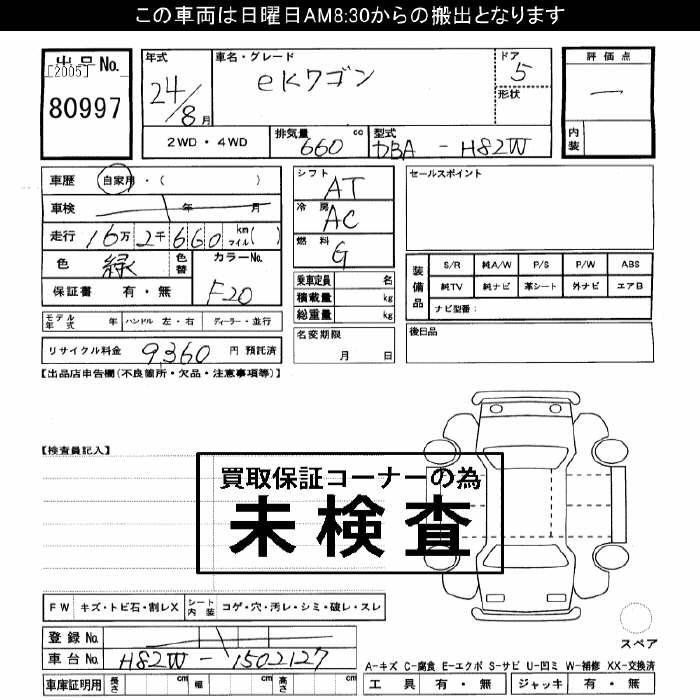 この車両は日曜日AM8:30からの搬出となります
出品No.
[2005]
80997
年式
24/8月
車名・グレード
eKワゴン
ドア
5
形状
評価点
―
内装
2WD・4WD
排気量
660 cc
型式
DBA - H82W
車歴 自家用・( )
車検 年 月
走行 16万2千660 km マイル( )
色 緑 色替 カラーNo.
F20
保証書 有・無
モデル年式 年 ハンドル 左・右 ディーラー・並行
リサイクル料金 9,360 円 預託済
シフト
AT
冷房
AC
燃料
G
乗車定員 名
積載量 kg
総重量 kg
名変期限
月 日
セールスポイント
装備品
S/R 純A/W P/S P/W ABS
純TV 純ナビ 革シート 外ナビ エアB
ナビ型番:
後日品
【出品店申告欄(不良箇所・欠品・注意事項等)】
【検査員記入】
買取保証コーナーの為
未検査
FW キズ・トビ石・割レX シート内装 コゲ・穴・汚レ・シミ・破レ・スレ
スペア
登録No.
車台No. H82W - 1502127
A-キズ C-腐食 E-エクボ S-サビ U-凹ミ W-補修 XX-交換済
車庫証明用 長さ cm 幅 cm 高さ cm
工具 有・無 ジャッキ 有・無